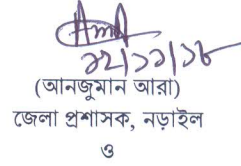 ১২/১১/১৮
(আনজুমান আরা)
জেলা প্রশাসক, নড়াইল
ও